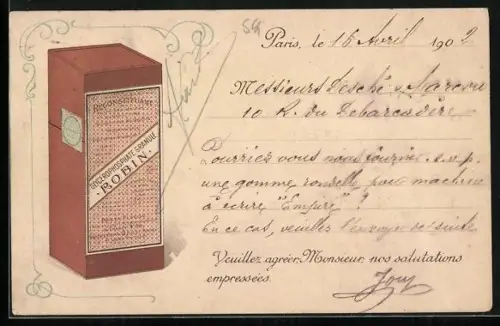 RECONSTITUANT
GLYCÉROPHOSPHATE GRANULÉ
ROBIN
Paris, le 16 Avril 1902
Messieurs Desché
10 R. du Débarcadère
Pourriez vous nous fournir s.v.p.
une gomme rondelle pour machine
à écrire "Empire" ?
En ce cas, veuillez l'envoyer de suite
Veuillez agréer, Monsieur, nos salutations
empressées.